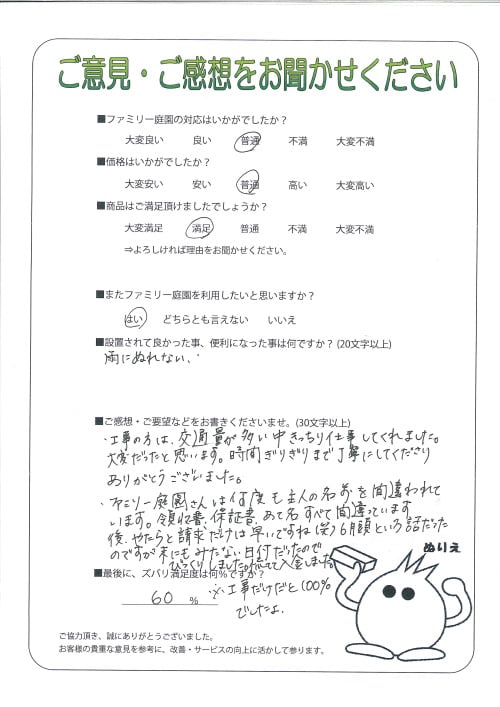 ご意見・ご感想をお聞かせください
■ファミリー庭園の対応はいかがでしたか？
大変良い 良い 普通 不満 大変不満
■価格はいかがでしたか？
大変安い 安い 普通 高い 大変高い
■商品はご満足頂けましたでしょうか？
大変満足 満足 普通 不満 大変不満
⇒よろしければ理由をお聞かせください。
■またファミリー庭園を利用したいと思いますか？
はい どちらとも言えない いいえ
■設置されて良かった事、便利になった事は何ですか？(20文字以上)
雨にぬれない、
■ご感想・ご要望などをお書きくださいませ。(30文字以上)
・工事の方は、交通量が多い中きっちり仕事してくれました。
大変だったと思います。時間ぎりぎりまで丁寧にしてくださり
ありがとうございました。
・ファミリー庭園さんは何度も主人の名前を間違われて
います。領収書、保証書、あて名すべて間違っています
後、やたらと請求だけは早いですね(笑)6月頭という話だった
のですが末にもみたない日付だったので
びっくりしました。がんばって入金しました。
■最後に、ズバリ満足度は何％ですか？
60 %
※工事だけだと100%
でしたよ。
ぬりえ
ご協力頂き、誠にありがとうございました。
お客様の貴重な意見を参考に、改善・サービスの向上に活かして参ります。